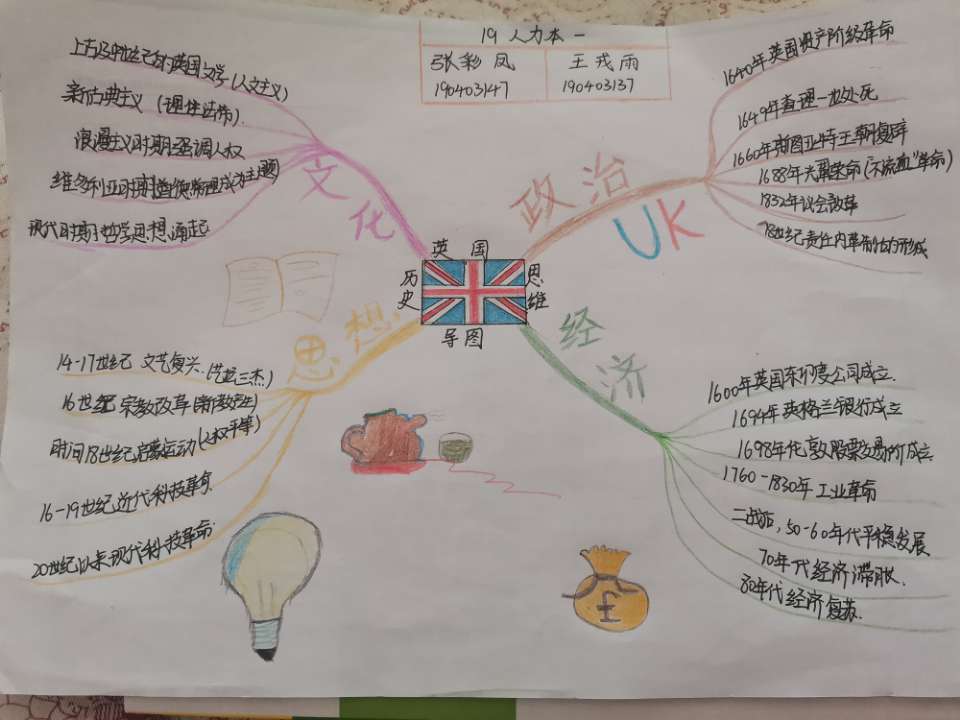 19 人力本一
张彩凤
190403147
王戎雨
190403137
文化
上古及中世纪的英国文学(人文主义)
新古典主义(理性法制)
浪漫主义时期强调人权
维多利亚时期(道德常理成为主题)
现代时期哲学思想涌起
政治
UK
1640年英国资产阶级革命
1649年查理一世处死
1660年斯图亚特王朝复辟
1688年光荣革命(“不流血”革命)
1832年议会改革
18世纪责任内阁制的形成
英国
历史
思维
导图
思想
14-17世纪 文艺复兴(艺坛三杰)
16世纪 宗教改革(新教产生)
时间18世纪启蒙运动(人权平等)
16-19世纪近代科技革命
20世纪以来现代科技革命
经济
1600年英国东印度公司成立
1694年英格兰银行成立
1698年伦敦股票交易所成立
1760-1830年 工业革命
二战后,50-60年代平稳发展
70年代经济滞胀
80年代经济复苏
£